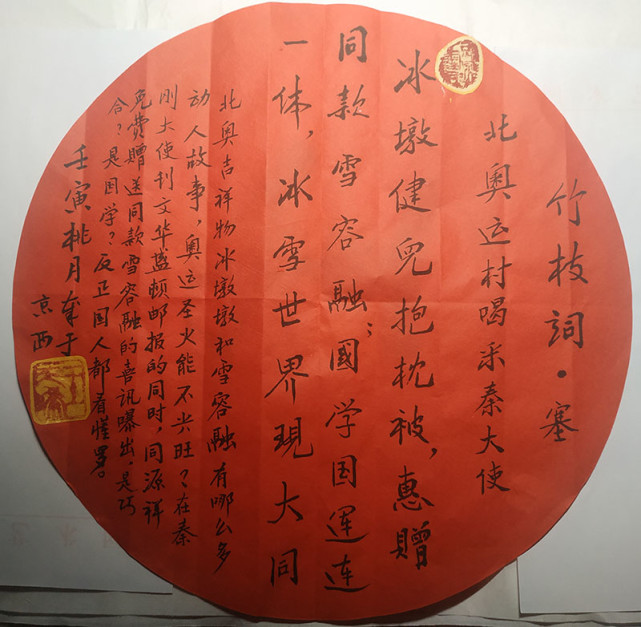 竹枝詞·塞
北奧运村喝采秦大使
冰墩健兒抱枕被,惠贈
同款雪容融;國学国運连
一体,冰雪世界現大同
北奥吉祥物冰墩墩和雪容融有哪么多
动人故事,奥运圣火能不兴旺?在秦
刚大使刊文华盛顿邮报的同时,同源祥
免費赠送同款雪容融的喜讯曝出,是巧
合?是国学?反正国人都看懂罗。
壬寅桃月奉于
京西